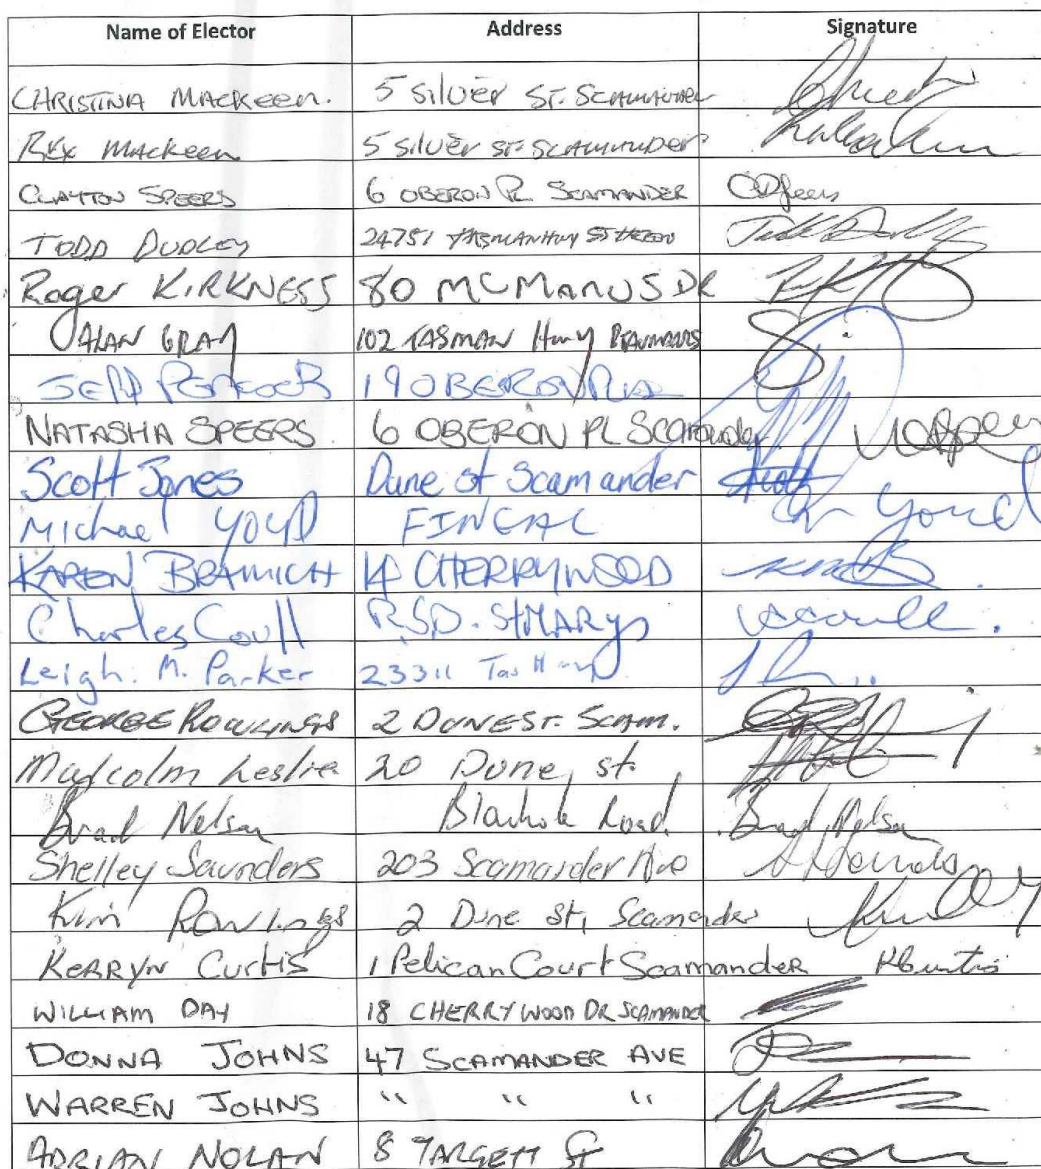 Name of Elector Address Signature
CHRISTINA MACKEEN. 5 SILVER ST. SCAMANDER
REX MACKEEN 5 SILVER ST. SCAMANDER
CLAYTON SPEERS 6 OBERON PL SCAMANDER
TODD DUDLEY 24751 TASMAN HWY ST HELENS
Roger KIRKNESS 80 MCMANUS DR
ALAN GRAY 102 TASMAN Hwy BEAUMARIS
JEFF 19 OBERON
NATASHA SPEERS 6 OBERON PL Scamander
Scott Jones Dune st Scamander
Michael YOUD FINGAL Youd
KAREN BRAMICH 14 CHERRYWOOD
Charles Coull R.S.D. St MARYs
Leigh. M. Parker 23311 Tas Hwy
GEORGE ROWLINGS 2 DUNE ST. SCAM.
Malcolm Leslie 20 Dune st.
Brad Nelson Road Brad Nelson
Shelley Saunders 203 Scamander Ave
Kim Rowlings 2 Dune St, Scamander
KERRYN CURTIS 1 Pelican Court Scamander KCurtis
WILLIAM DAY 18 CHERRYWOOD DR SCAMANDER
DONNA JOHNS 47 SCAMANDER AVE
WARREN JOHNS " " "
ADRIAN NOLAN 8 TARGETT ST